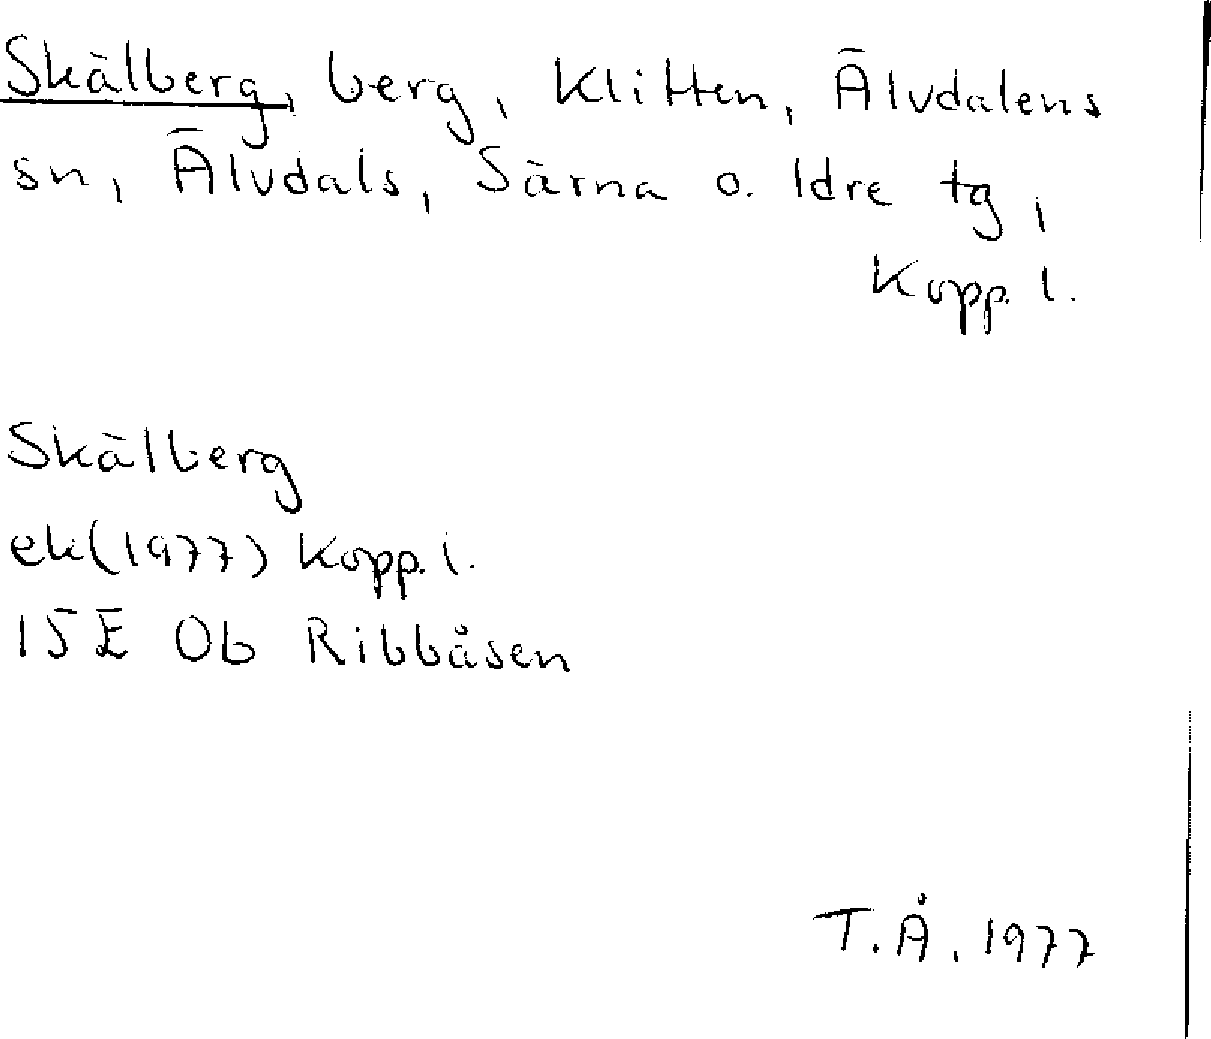 Skälberg, berg, Klitten, Älvdalens
sn, Älvdals, Särna o. Idre tg,
Kopp. l.
Skälberg
ek(1977) Kopp. l.
15E 0b Ribbåsen
T.Å. 1977